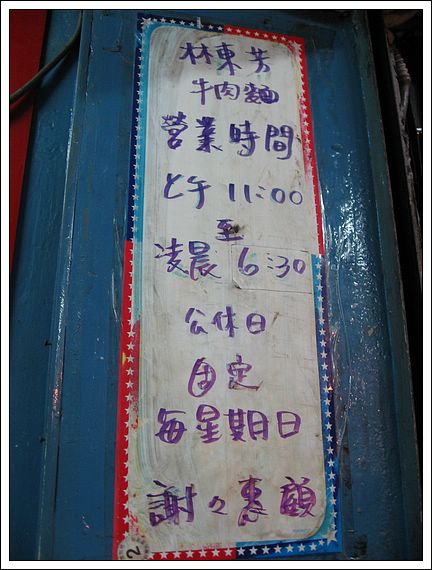 林東芳
牛肉麵
營業時間
上午 11:00
至
凌晨 6:30
公休日
固定
每星期日
謝々惠顧
2